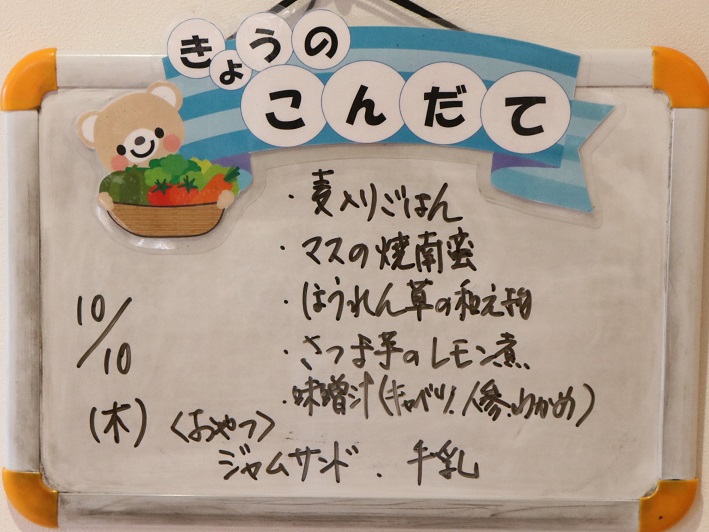 きょうの
こんだて
・麦入りごはん
・マスの焼南蛮
・ほうれん草の和え物
・さつま芋のレモン煮
・味噌汁(キャベツ、人参、わかめ)
10/10
(木)
〈おやつ〉
ジャムサンド、牛乳